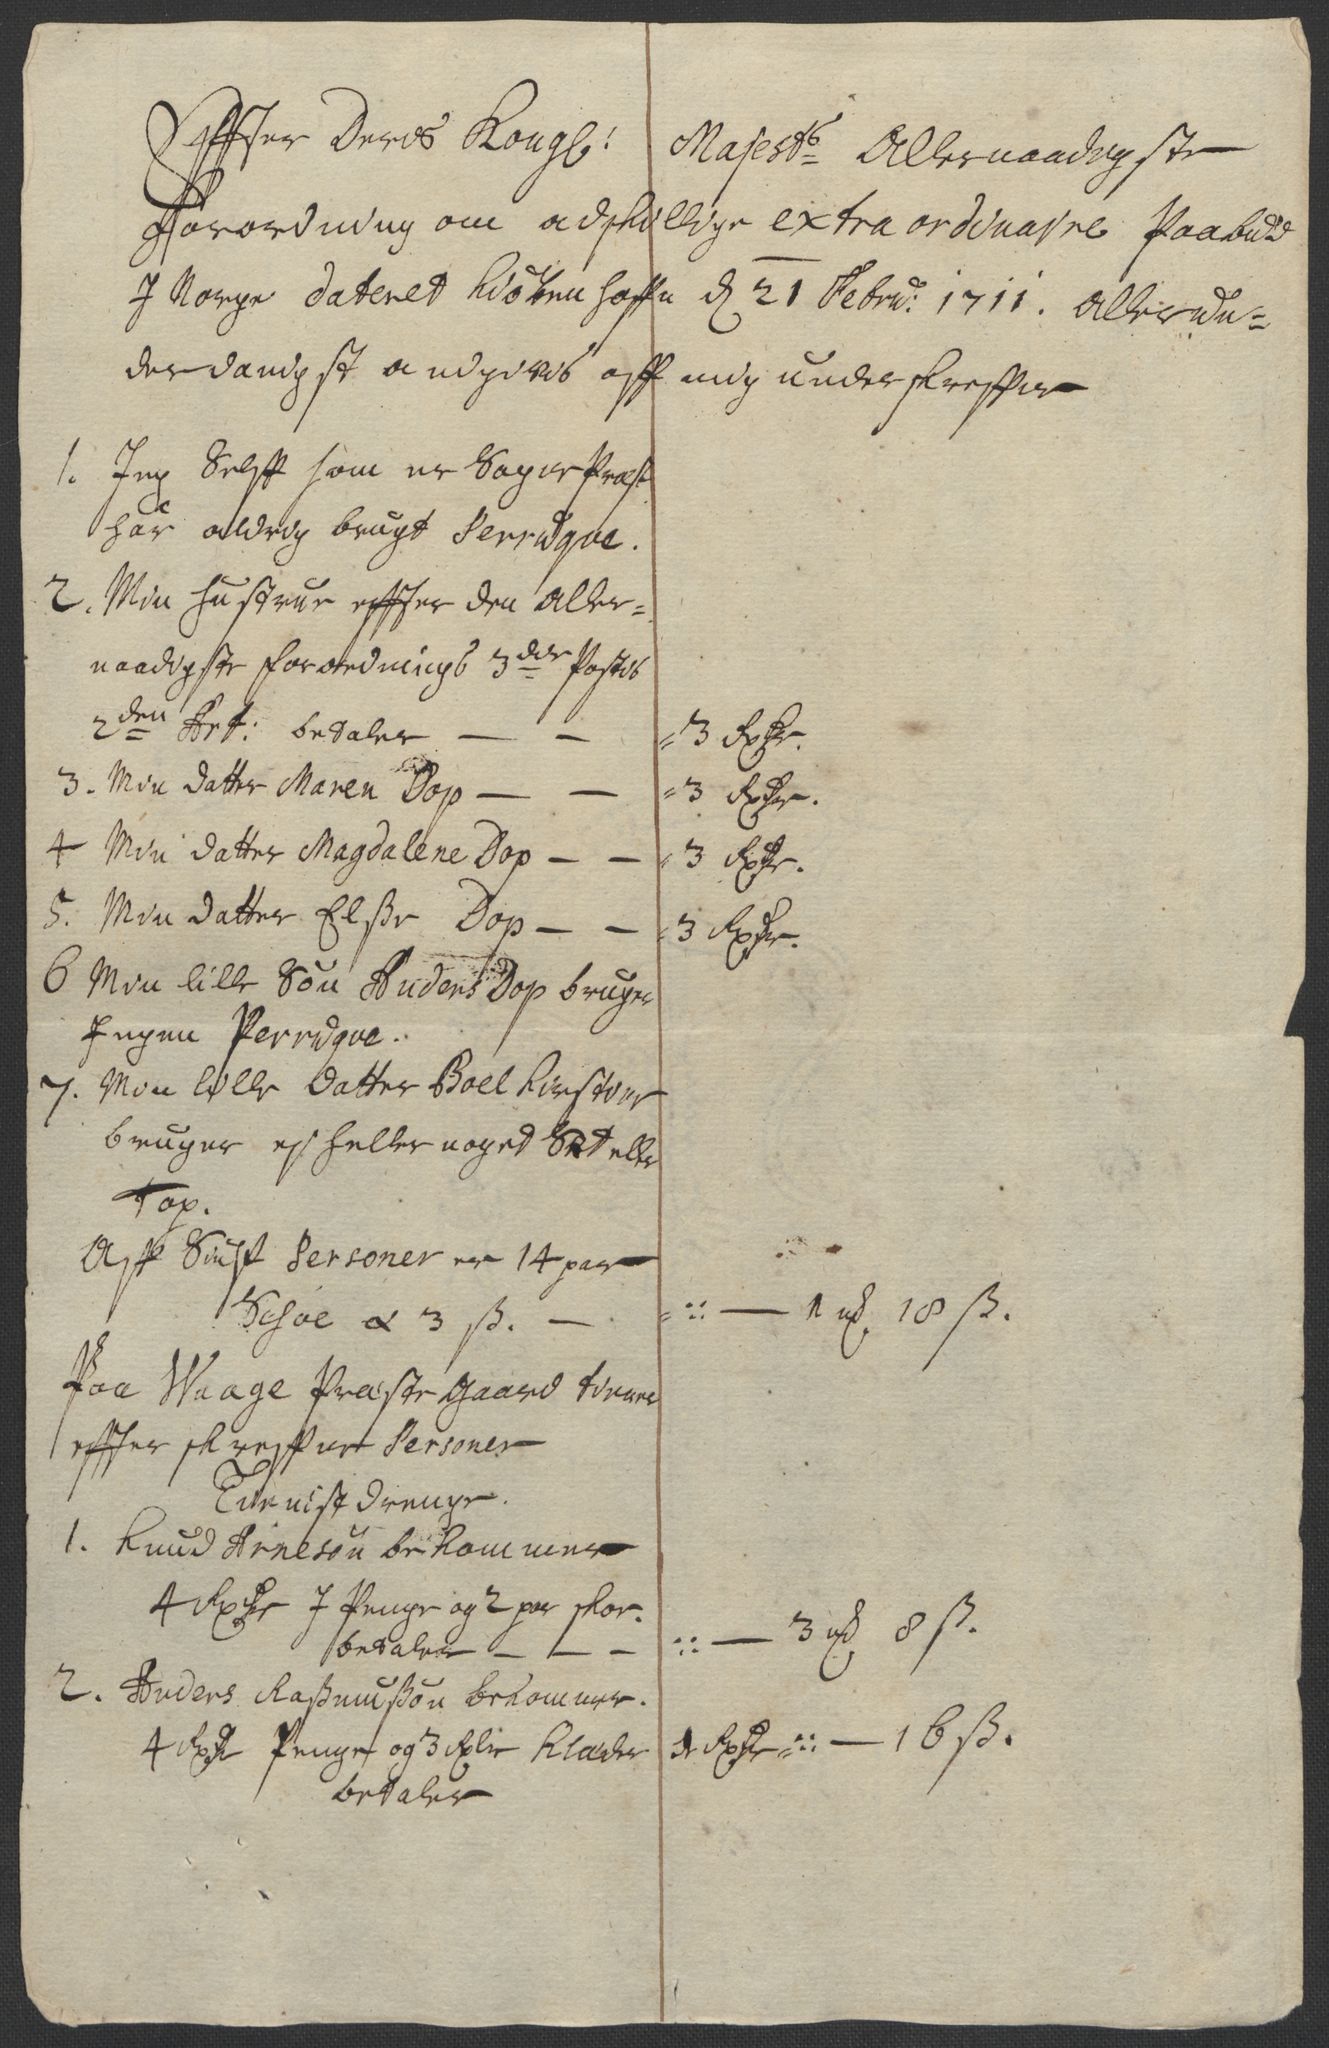 Effter Deris Kongl: Majestts Allernaadigste
Forordning om adskillige extra ordinaire Paabud
J Norge dateret Kiøbenhaffn d 21 Febru: 1711. Allerun=
derdanigst andgives aff mig underskreffne
1. Jeg Selff som er Sogne Præst
har aldrig brugt Perruqve.
2. Min hustrue effter den Aller=
naadigste forordnings 3die Postis
2den Art: betaler — — = 3 Rixdr.
3. Min datter Maren Dop — — = 3 Rixdr.
4 Min datter Magdalene Dop — — = 3 Rixdr.
5. Min datter Elsse Dop — — = 3 Rixdr.
6 Min lille Søn Anders Dop bruger
Ingen Perruqve.
7. Min lille datter Boel Kirstine
bruger ej heller noget Sæt eller
Top.
Aff Siust Personer er 14 par
Schoe a 3 ß. — = :: — 1 mk 18 ß.
Paa Waage Præste Gaard tiener
effterskreffne Personer
Tienistdrenge.
1. Knud Arnesøn bekommer
4 Rixdr J Penge og 2 par skoe.
betaler — — — :: — 3 mk 8 ß.
2. Anders Rassmussøn bekommer.
4 Rixdr Penge og 3 Rixdr Klæder 1 Rixdr = :: — 16 ß.
betaler